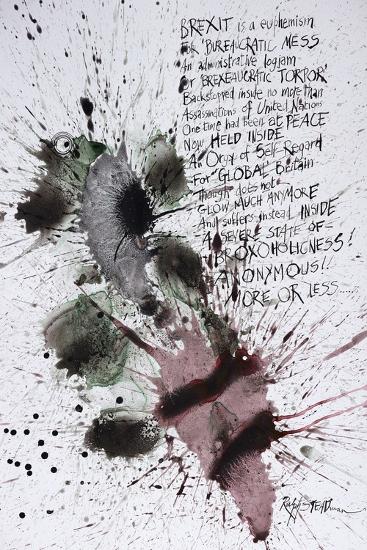 BREXIT is a euphemism
FOR 'BUREAUCRATIC MESS
An administrative logjam
Or 'BREXEAUCRATIC TORPOR'
Backstopped inside no more than
Assassinations of United Nations
One time had been at PEACE
Now HELD INSIDE
An Orgy of Self Regard
For "GLOBAL" Britain
Though does not
GLOW MUCH ANYMORE
And suffers instead INSIDE
A SEVERE STATE OF—
BROXOHOLICNESS!
ANONYMOUS!.
MORE OR LESS.....
Ralph STEADman